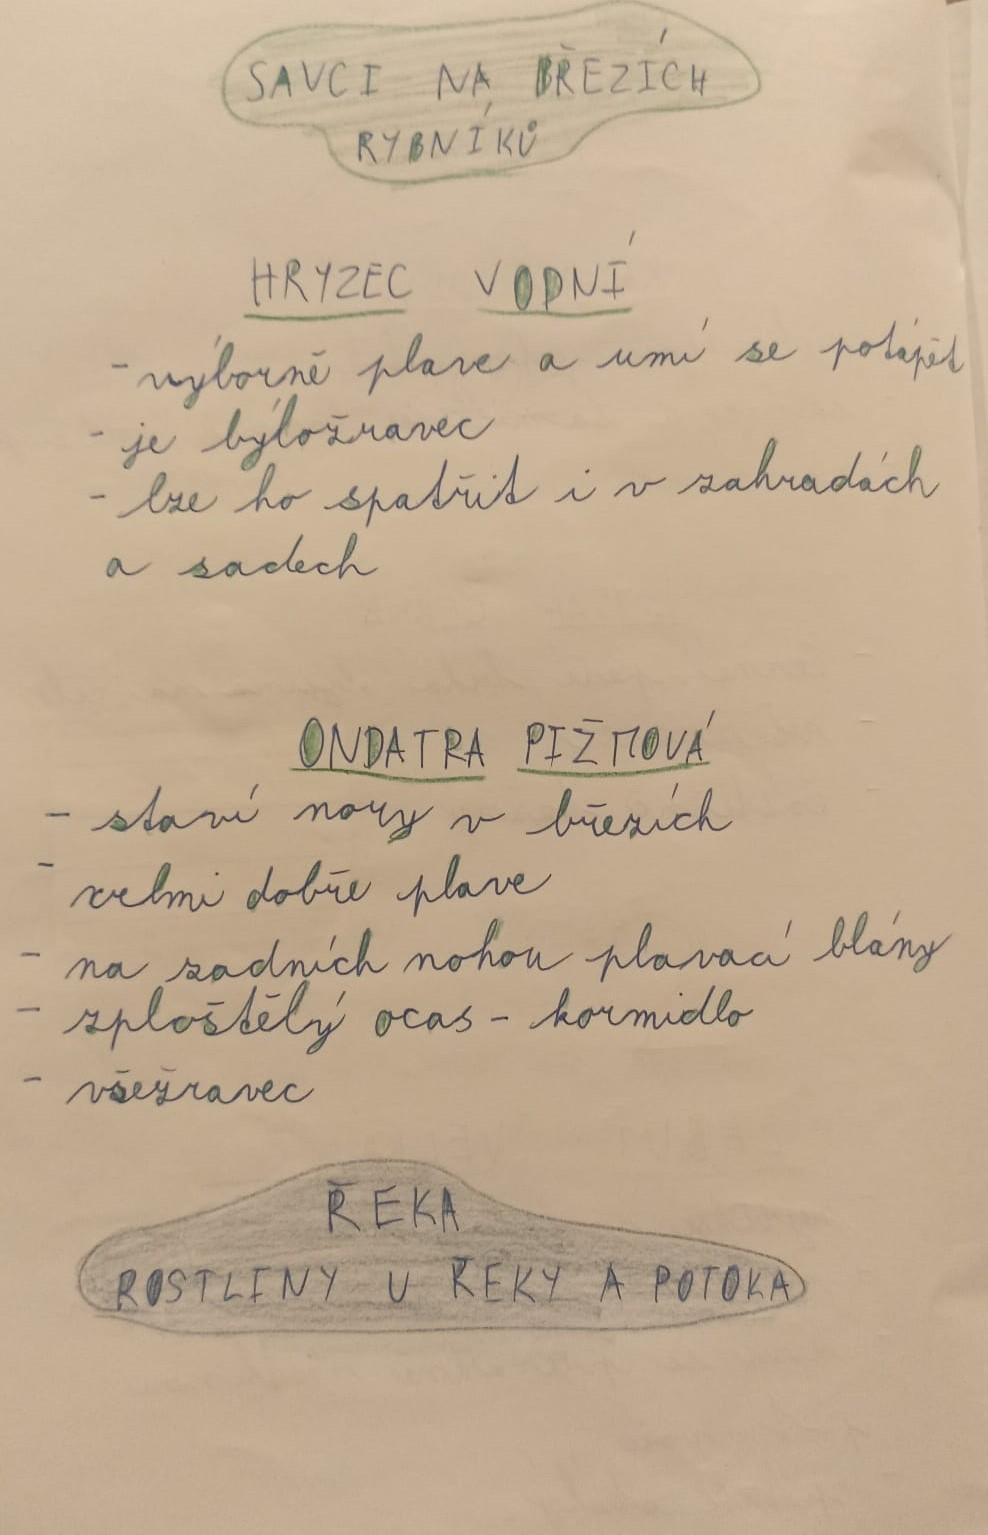 SAVCI NA BŘEZÍCH
RYBNÍKŮ
HRYZEC VODNÍ
- výborně plave a umí se potápět
- je býložravec
- lze ho spatřit i v zahradách
a sadech
ONDATRA PIŽMOVÁ
- staví nory v březích
- velmi dobře plave
- na zadních nohou plavací blány
- zploštělý ocas - kormidlo
- všežravec
ŘEKA
ROSTLINY U ŘEKY A POTOKA